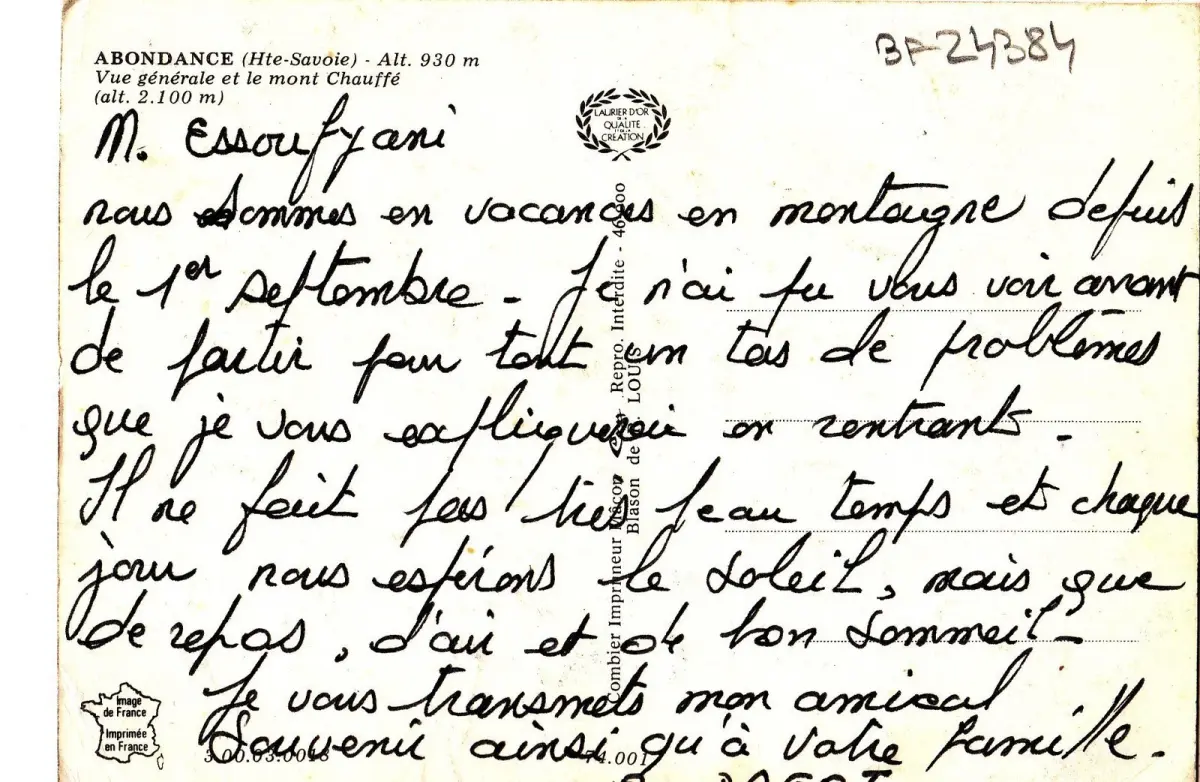 BF-24384
ABONDANCE (Hte-Savoie) - Alt. 930 m
Vue générale et le mont Chauffé
(alt. 2.100 m)
LAURIER D'OR
DE LA
QUALITÉ
ET DE LA
CRÉATION
M. Essoufyani
nous sommes en vacances en montagne depuis
le 1er septembre - Je n'ai pu vous voir avant
de partir pour tout un tas de problèmes
que je vous expliquerai en rentrant -
Il ne fait pas très beau temps et chaque
jour nous espérons le soleil, mais que
de repos, d'air et de bon sommeil -
Je vous transmets mon amical
Souvenir ainsi qu'à votre famille.
Combier Imprimeur Mâcon Repro. Interdite
Blason de LOUIS
Image
de France
Imprimée
en France
74.001